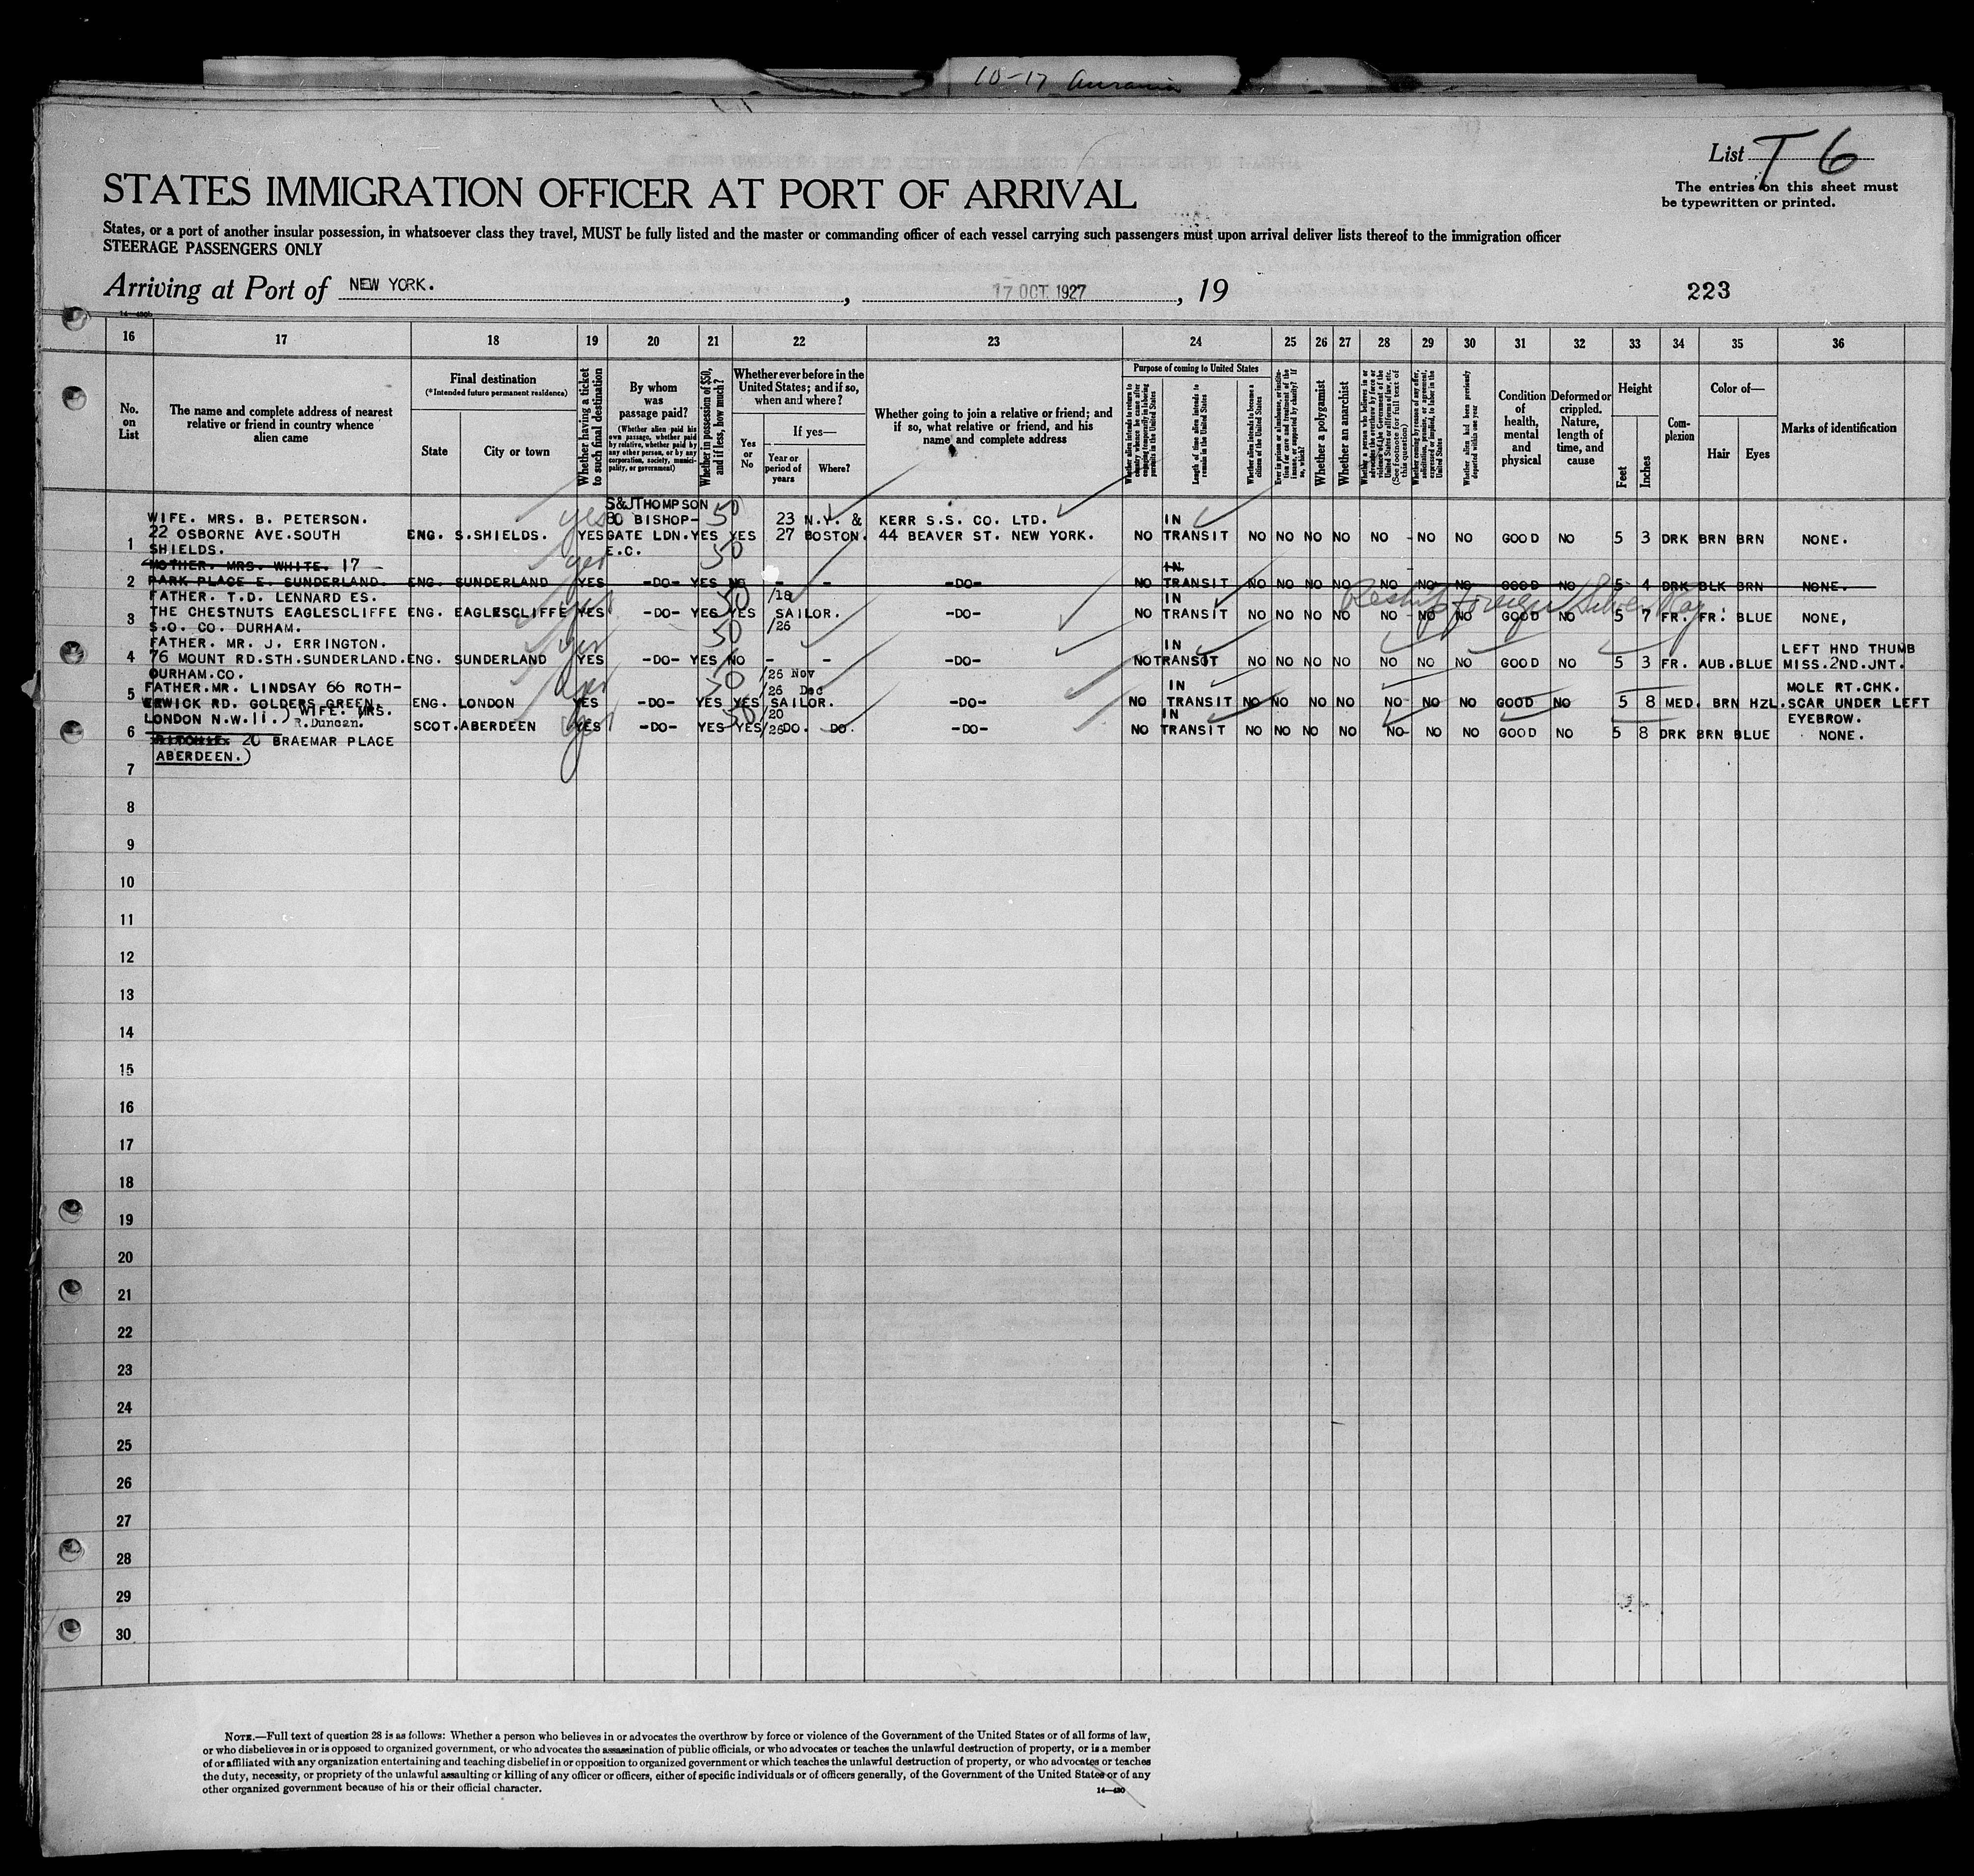 10-17 Aurania
List T 6
The entries on this sheet must
be typewritten or printed.
STATES IMMIGRATION OFFICER AT PORT OF ARRIVAL
States, or a port of another insular possession, in whatsoever class they travel, MUST be fully listed and the master or commanding officer of each vessel carrying such passengers must upon arrival deliver lists thereof to the immigration officer
STEERAGE PASSENGERS ONLY
Arriving at Port of NEW YORK. , 17 OCT 1927 , 19
223
14—430b
16 17 18 19 20 21 22 23 24 25 26 27 28 29 30 31 32 33 34 35 36
No. on List
The name and complete address of nearest relative or friend in country whence alien came
Final destination
(*Intended future permanent residence)
State
City or town
Whether having a ticket to such final destination
By whom was passage paid?
(Whether alien paid his own passage, whether paid by relative, whether paid by any other person, or by any corporation, society, municipality, or government)
Whether in possession of $50, and if less, how much?
Whether ever before in the United States; and if so, when and where?
Yes or No
If yes—
Year or period of years
Where?
Whether going to join a relative or friend; and if so, what relative or friend, and his name and complete address
Purpose of coming to United States
Whether alien intends to return to country whence he came after engaging temporarily in laboring pursuits in the United States
Length of time alien intends to remain in the United States
Whether alien intends to become a citizen of the United States
Ever in prison or almshouse, or institution for care and treatment of the insane, or supported by charity? If so, which?
Whether a polygamist
Whether an anarchist
Whether a person who believes in or advocates the overthrow by force or violence of the Government of the United States or all forms of law, etc. (See footnote for full text of this question)
Whether coming by reason of any offer, solicitation, promise, or agreement, expressed or implied, to labor in the United States
Whether alien had been previously deported within one year
Condition of health, mental and physical
Deformed or crippled. Nature, length of time, and cause
Height
Feet
Inches
Complexion
Color of—
Hair
Eyes
Marks of identification
1 WIFE. MRS. B. PETERSON. 22 OSBORNE AVE.SOUTH SHIELDS. ENG. S.SHIELDS. yes YES S&JTHOMPSON 80 BISHOP-GATE LDN. E.C. 50 YES YES 23 27 N.Y. & BOSTON. KERR S.S. CO. LTD. 44 BEAVER ST. NEW YORK. NO IN TRANSIT NO NO NO NO NO NO NO GOOD NO 5 3 DRK BRN BRN NONE.
2 MOTHER. MRS. WHITE. 17 PARK PLACE E. SUNDERLAND. ENG. SUNDERLAND yes YES -DO- 50 YES NO - - -DO- NO IN. TRANSIT NO NO NO NO NO NO NO GOOD NO 5 4 DRK BLK BRN NONE.
3 FATHER. T.D. LENNARD ES. THE CHESTNUTS EAGLESCLIFFE S.O. CO. DURHAM. ENG. EAGLESCLIFFE yes YES -DO- 50 YES YES /18 /26 SAILOR. -DO- NO IN TRANSIT NO NO NO NO NO NO NO GOOD NO 5 7 FR. FR. BLUE NONE,
Reship foreign Silver Ray
4 FATHER. MR. J. ERRINGTON. 76 MOUNT RD.STH.SUNDERLAND. DURHAM.CO. ENG. SUNDERLAND yes YES -DO- 50 YES NO - - -DO- NO IN TRANSOT NO NO NO NO NO NO NO GOOD NO 5 3 FR. AUB. BLUE LEFT HND THUMB MISS.2ND.JNT.
5 FATHER.MR. LINDSAY 66 ROTH-ERWICK RD. GOLDERS GREEN. LONDON N.W.11.) ENG. LONDON yes YES -DO- 50 YES YES /26 Nov /26 Dec SAILOR. -DO- NO IN TRANSIT NO NO NO NO NO NO NO GOOD NO 5 8 MED. BRN HZL. MOLE RT.CHK. SCAR UNDER LEFT EYEBROW.
6 WIFE. MRS. R.Duncan. 20 BRAEMAR PLACE ABERDEEN.) SCOT. ABERDEEN yes YES -DO- 50 YES YES /20 /26 DO. DO. -DO- NO IN TRANSIT NO NO NO NO NO NO NO GOOD NO 5 8 DRK BRN BLUE NONE.
7
8
9
10
11
12
13
14
15
16
17
18
19
20
21
22
23
24
25
26
27
28
29
30
NOTE.—Full text of question 28 is as follows: Whether a person who believes in or advocates the overthrow by force or violence of the Government of the United States or of all forms of law,
or who disbelieves in or is opposed to organized government, or who advocates the assassination of public officials, or who advocates or teaches the unlawful destruction of property, or is a member
of or affiliated with any organization entertaining and teaching disbelief in or opposition to organized government or which teaches the unlawful destruction of property, or who advocates or teaches
the duty, necessity, or propriety of the unlawful assaulting or killing of any officer or officers, either of specific individuals or of officers generally, of the Government of the United States or of any
other organized government because of his or their official character.
14—430